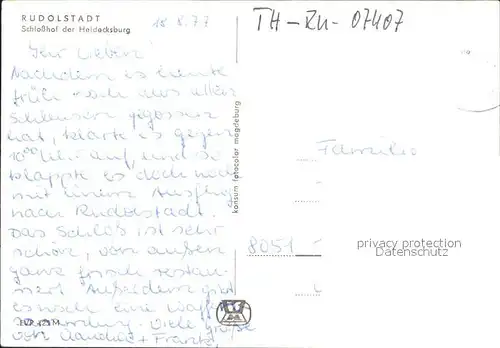 RUDOLSTADT
Schloßhof der Heidecksburg
18.8.77
TH-Ru-07407
Ihr Lieben!
Nachdem es heute
früh noch aus allen
Schleusen gegossen
hat, klarte es gegen
10⁰⁰ Uhr auf, und so
klappte es doch noch
mit einem Ausflug
nach Rudolstadt.
Das Schloß ist sehr
schön, von außen
ganz frisch restau-
riert. Außerdem gibt
es noch eine Waffen-
sammlung. Viele Grüße
von Claudia + Frank
konsum fotocolor magdeburg
Familie
8051
privacy protection
Datenschutz